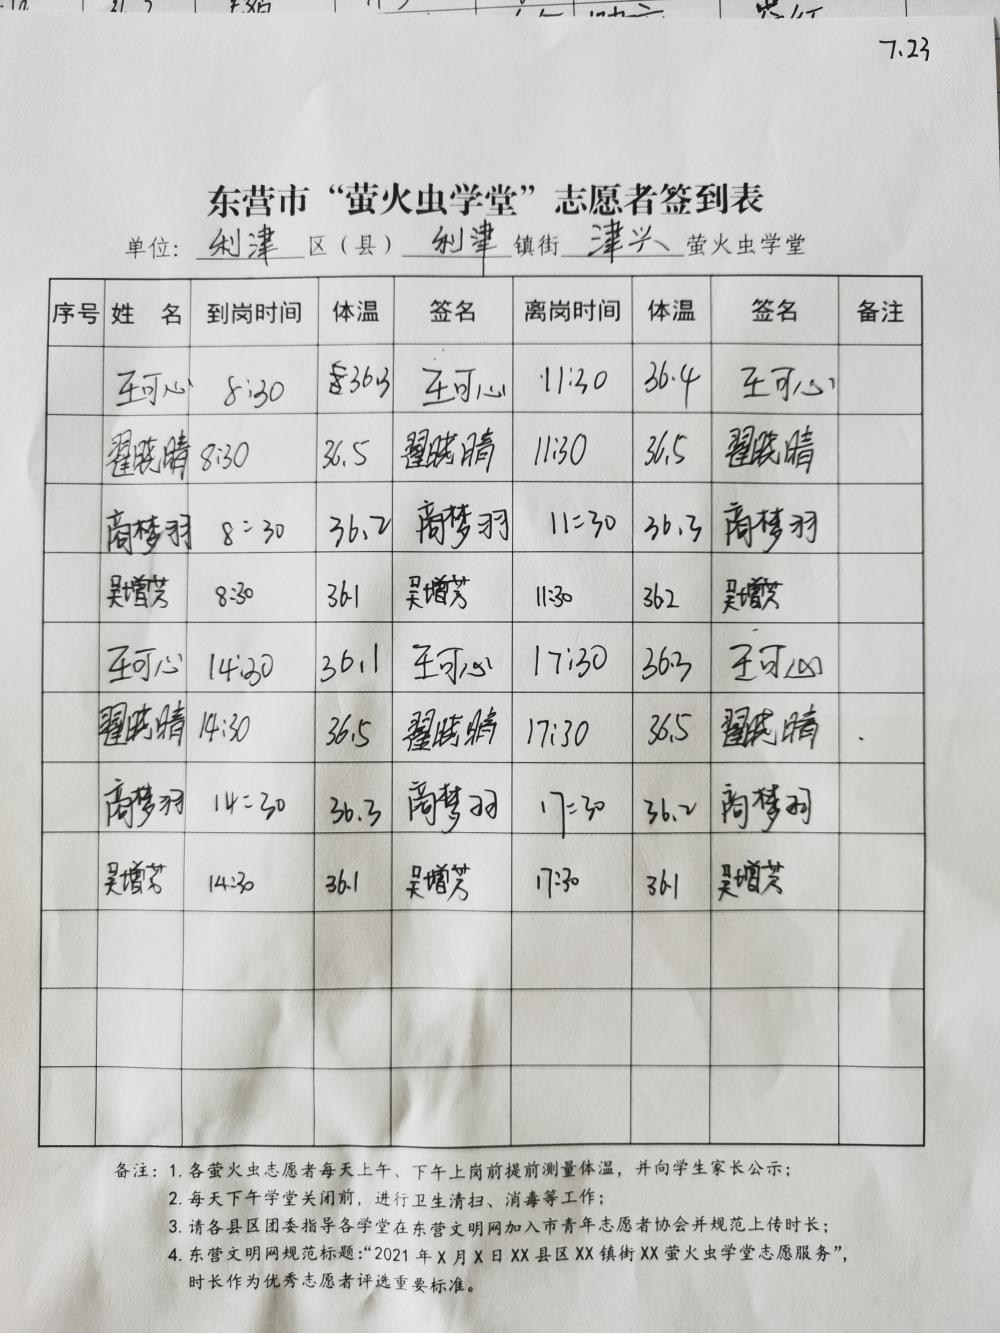 7.23
东营市“萤火虫学堂”志愿者签到表
单位: 利津 区(县) 利津 镇街 津兴 萤火虫学堂
序号 姓 名 到岗时间 体温 签名 离岗时间 体温 签名 备注
王可心 8:30 36.3 王可心 11:30 36.4 王可心
翟晓晴 8:30 36.5 翟晓晴 11:30 36.5 翟晓晴
商梦羽 8:30 36.2 商梦羽 11:30 36.3 商梦羽
吴增芳 8:30 36.1 吴增芳 11:30 36.2 吴增芳
王可心 14:30 36.1 王可心 17:30 36.3 王可心
翟晓晴 14:30 36.5 翟晓晴 17:30 36.5 翟晓晴
商梦羽 14:30 36.3 商梦羽 17:30 36.2 商梦羽
吴增芳 14:30 36.1 吴增芳 17:30 36.1 吴增芳
备注: 1. 各萤火虫志愿者每天上午、下午上岗前提前测量体温,并向学生家长公示;
2. 每天下午学堂关闭前,进行卫生清扫、消毒等工作;
3. 请各县区团委指导各学堂在东营文明网加入市青年志愿者协会并规范上传时长;
4. 东营文明网规范标题:“2021 年 X 月 X 日 XX 县区 XX 镇街 XX 萤火虫学堂志愿服务”,
时长作为优秀志愿者评选重要标准。